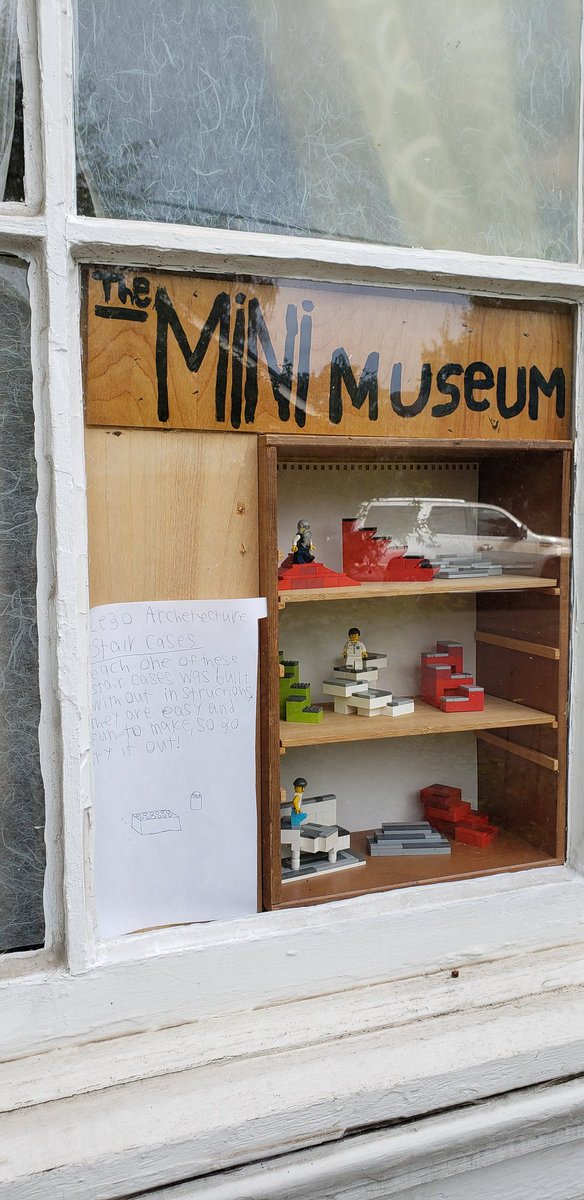 The MiNi MUseUM
Le3O Archetecture
Stair cases
each one of these
stair cases was built
with out in structions,
they are easy and
fun to make, so go
try it out!